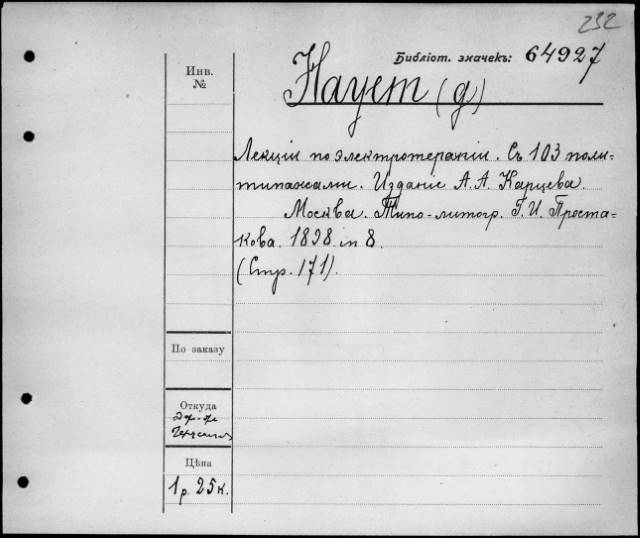 232
Библіот. значекъ: 64927
Инв.
№
Науст (д)
Лекціи по электротерапіи. Съ 103 поли-
типажами. Изданіе А. А. Карцева.
Москва. Типо-литогр. Г. И. Проста-
кова. 1898. in 8.
(Стр. 171).
По заказу
Откуда
Цѣна
1 р. 25 к.